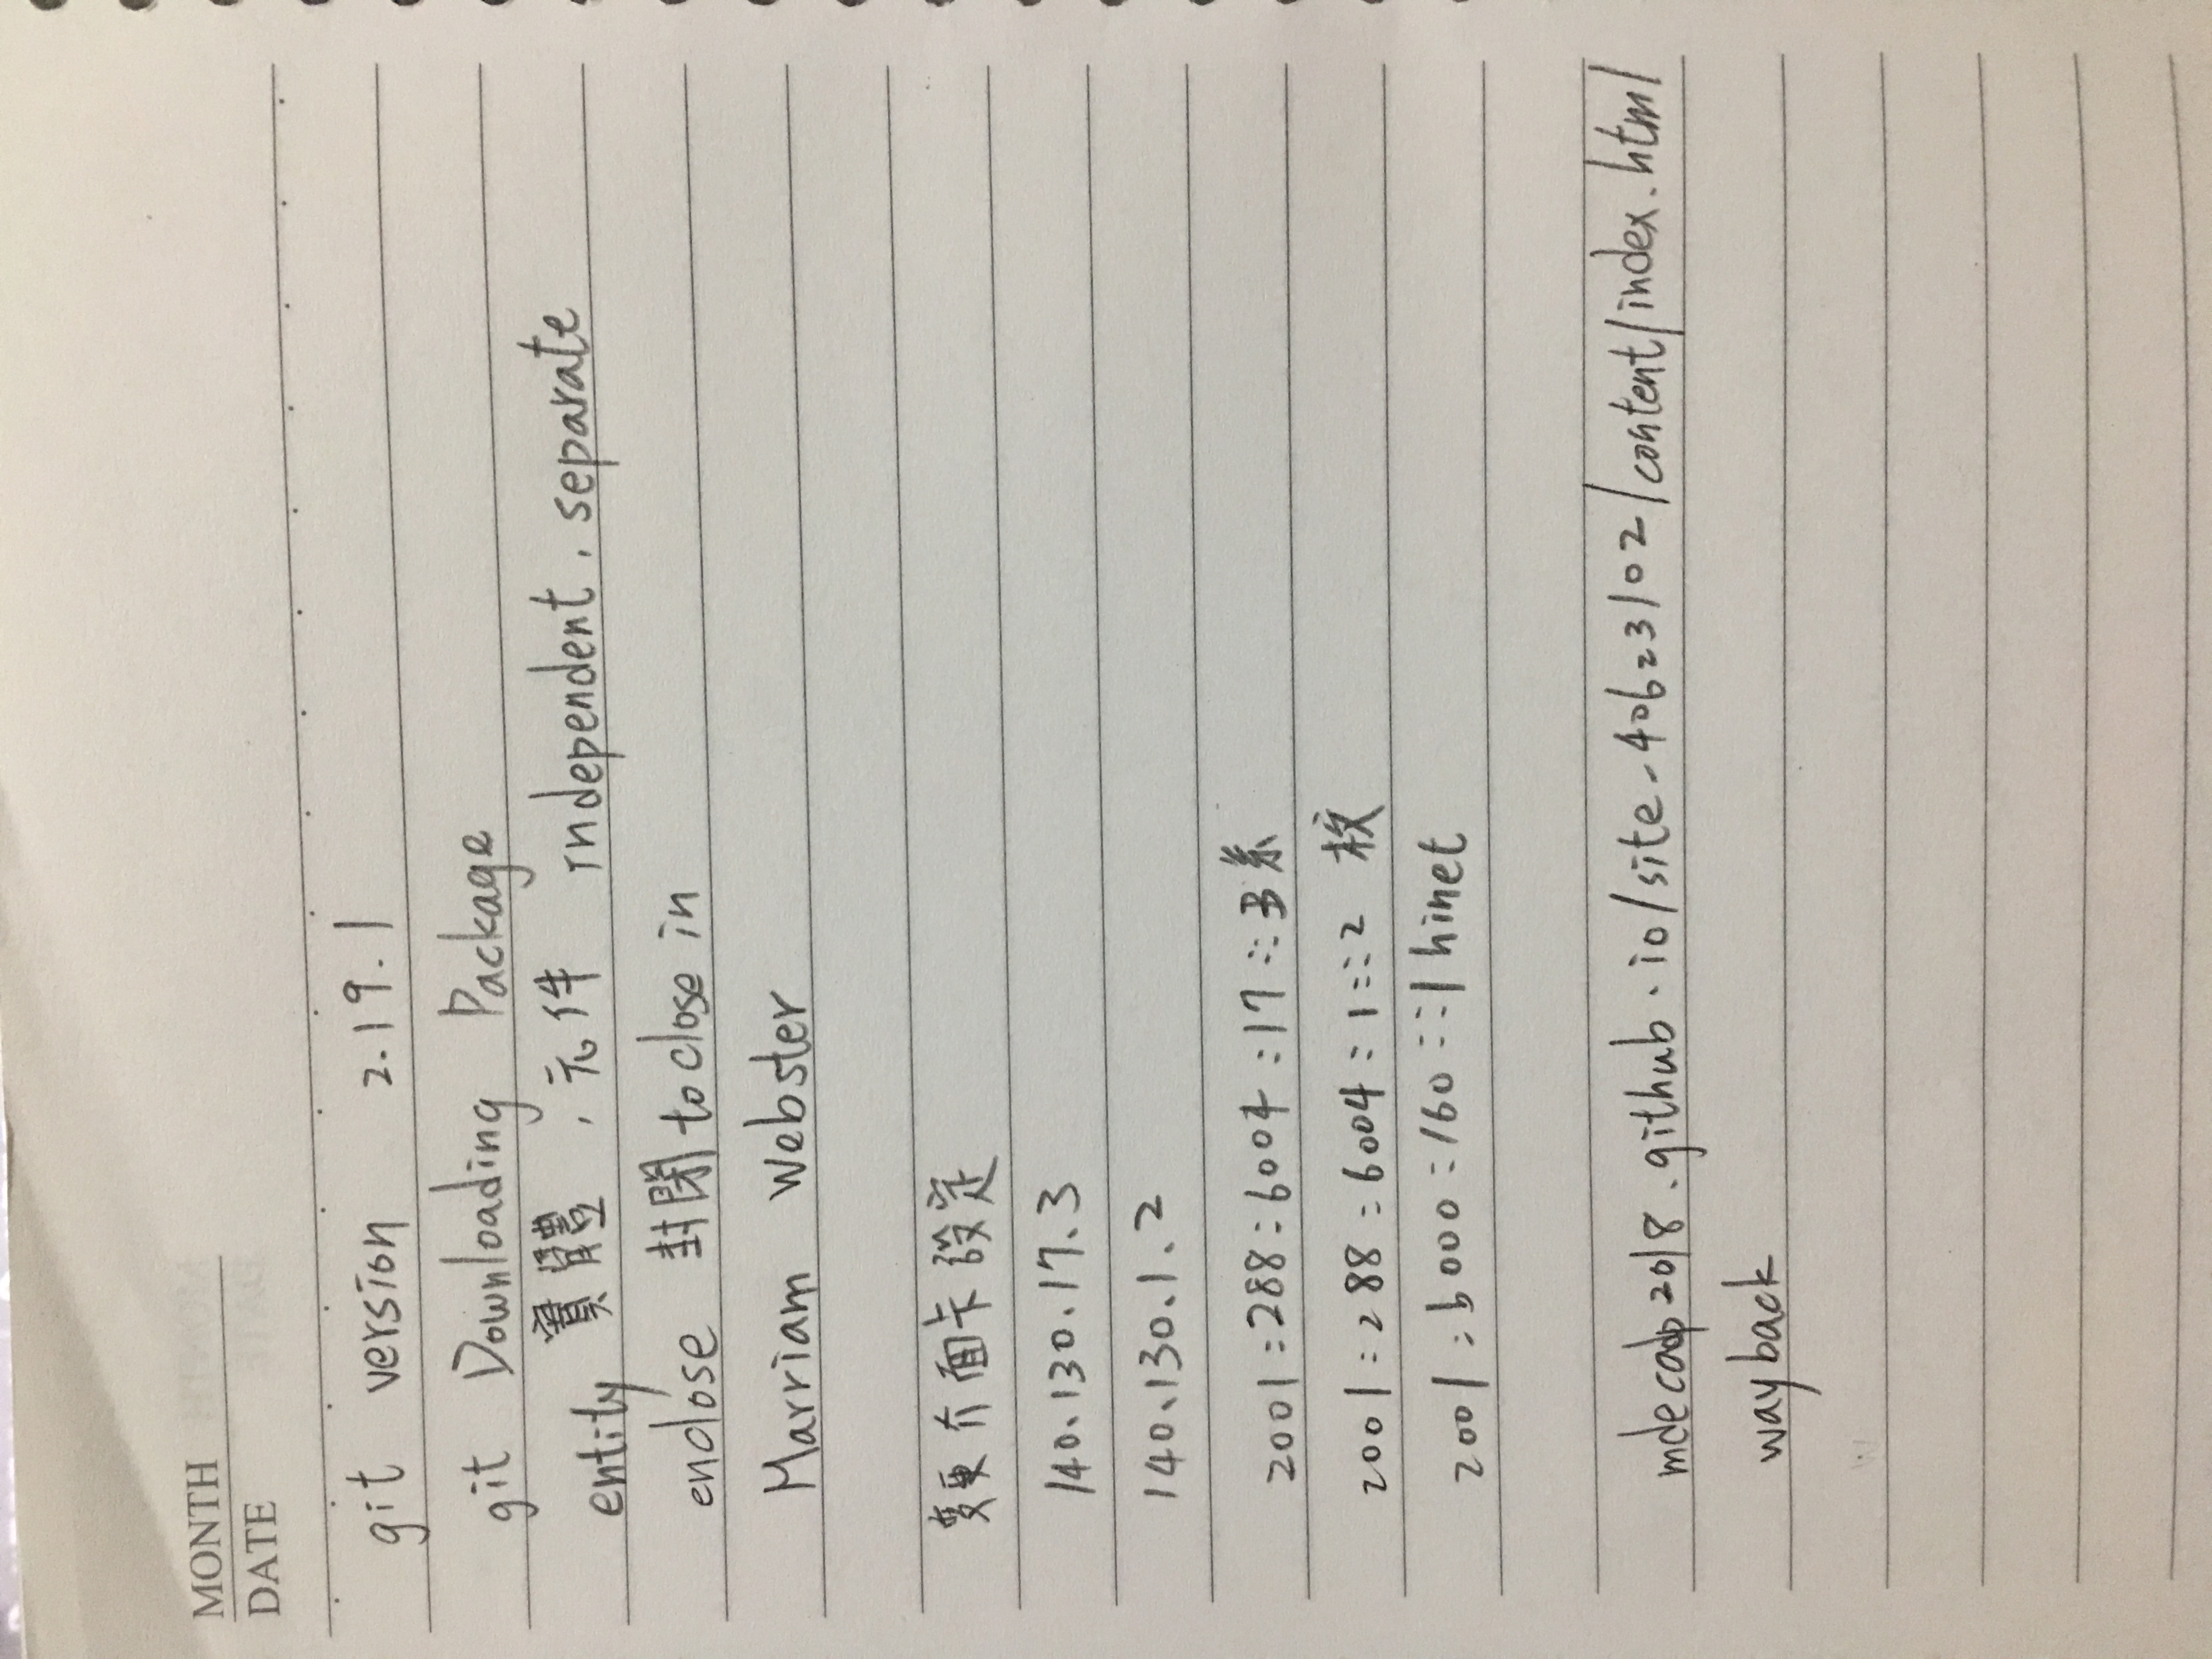 MONTH
DATE
git version 2.19.1
git Downloading Package
entity 實體,元件 independent, separate
enclose 封閉 to close in
Marriam Webster
變更介面卡設定
140.130.17.3
140.130.1.2
2001:288:6004:17::3系
2001:288:6004:1::2 校
2001:b000:160::1 hinet
mdecadp2018.github.io/site-40623102/content/index.html
wayback